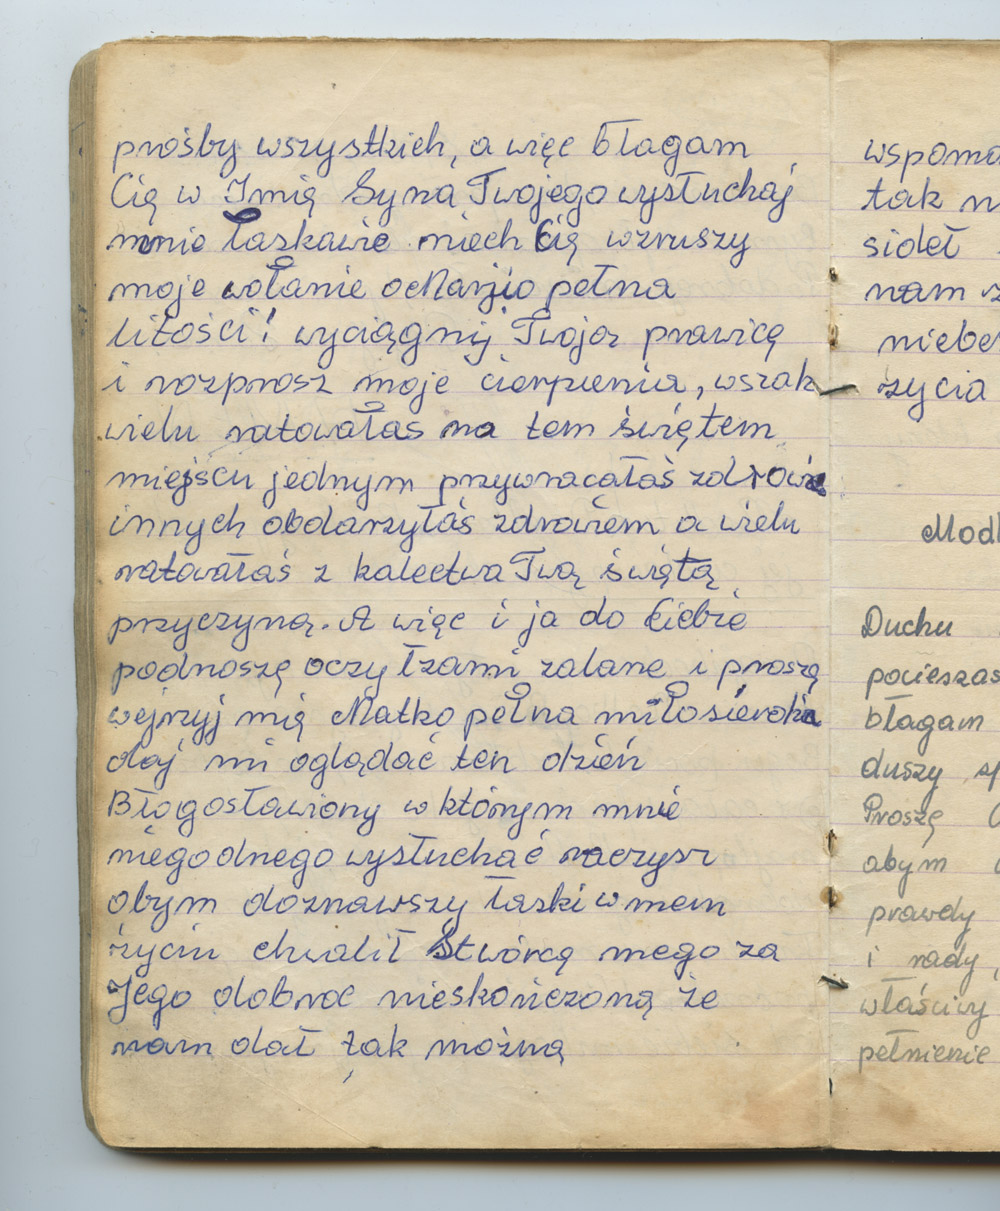 prośby wszystkich, a więc błagam
Cię w Imię Syna Twojego wysłuchaj
mnie łaskawie niech Cię wzruszy
moje wołanie och Maryjo pełna
litości! wyciągnij Twoją prawicę
i rozprosz moje cierpienia, wszak
wielu ratowałaś na tem świętem
miejscu jednym przywracałaś zdrowie
innych obdarzyłaś zdrowiem a wielu
ratowałaś z kalectwa Twą świętą
przyczyną. A więc i ja do Ciebie
podnoszę oczy łzami zalane i proszę
wejrzyj mię Matko pełna miłosierdzia
daj mi oglądać ten dzień
Błogosławiony w którym mnie
niegodnego wysłuchać raczysz
abym doznawszy łaski w mem
życiu chwalił Stwórcę mego za
Jego dobroć nieskończoną że
nam dał tak możną
wspomo
tak n
sideł
nam z
niebe
życia
Modl
Duchu
pocieszas
błagam
duszy sp
Proszę
abym
prawdy
i rady,
właściwy
pełnienie